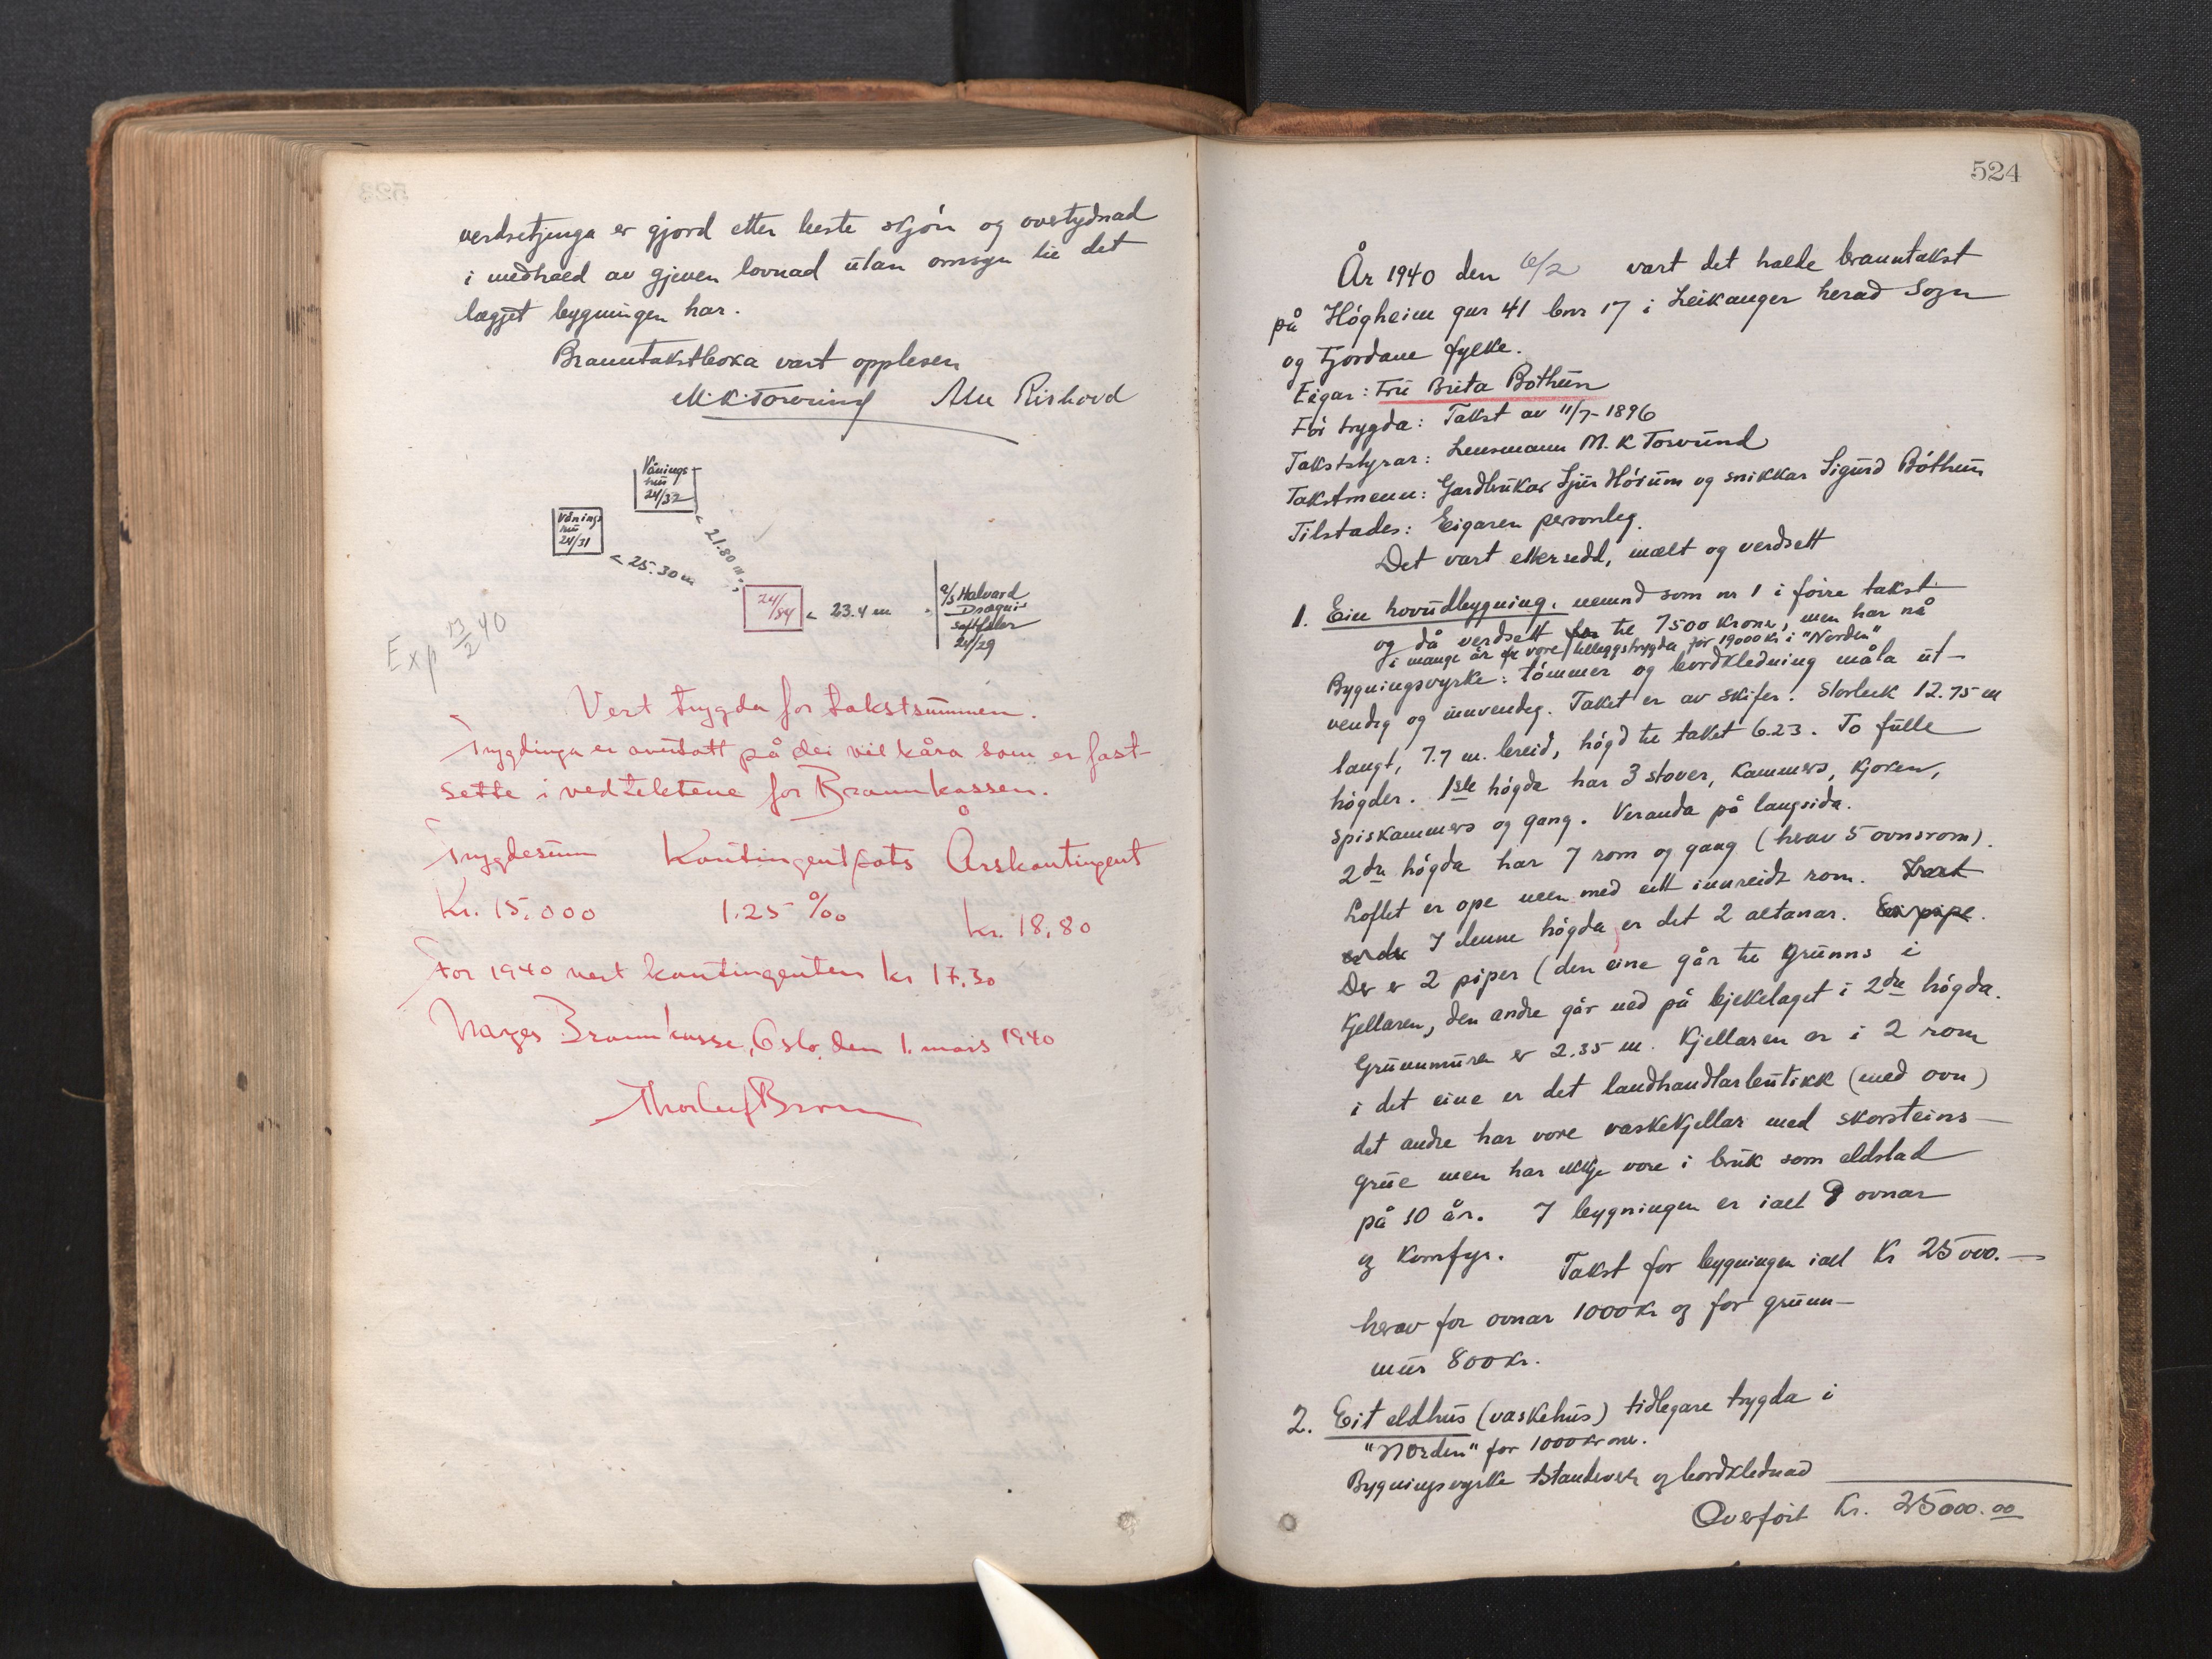 verdsetjinga er gjord etter beste skjøn og overtydnad
i medhald av gjeven lovnad utan omsyn til det
lægjet bygningen har.
Branntakstboka vart opplesen
M. K. Torvund
523
Vånings
hus
24/32
Vånings
hus
24/31
< 21.80 m
< 25.30 m
24/84
< 23.4 m
a/s Halvard
Dragnis
saftfabr
24/29
Exp 13/2 40
Vert trygda for takstsummen.
Trygdinga er overtatt på dei vilkåra som er fast-
sette i vedtektene for Brannkassen.
Trygdesum Kontingentsats Årskontingent
Kr. 15.000 1.25 ‰ kr. 18,80
For 1940 vert kontingenten kr 17,30
Norges Brannkasse, Oslo, den 1. mars 1940
524
År 1940 den 6/2 vart det halde branntakst
på Høgheim gnr 41 bnr 17 i Leikanger herad Sogn
og Fjordane fylke.
Eigar: Fru Brita Bøthun
Før trygda: Takst av 11/7-1896
Takststyrar: Lensmann M. K Torvund
Takstmenn: Gardbrukar Sjur Hørum og snikkar Sigurd Bøthun
Tilstades: Eigaren personleg.
Det vart ettersedd, mælt og verdsett
1. Ein hovudbygning, nemnd som nr 1 i førre takst
og då verdsett for til 7500 kroner, men har nå
i mange år vore tilleggstrygda for 19000 kr i "Norden"
Bygningsvyrke: tømmer og bordkledning måla ut-
vendig og innvendig. Taket er av skifer. Storleik 12.75 m
langt, 7.7 m. breid, høgd til taket 6.23. To fulle
høgder. 1ste høgda har 3 stover, kammers, kjøken,
spiskammers og gang. Veranda på langsida.
2dre høgda har 7 rom og gang (herav 5 ovnsrom).
Loftet er ope men med eitt innreidt rom.
I denne høgda er det 2 altanar. Ei pipe.
Der er 2 piper (den eine går til grunns i
kjellaren, den andre går ned på bjelkelaget i 2dre høgda.
Grunnmuren er 2.35 m. Kjellaren er i 2 rom
i det eine er det landhandlarbutikk (med ovn)
det andre har vore vaskekjellar med skorsteins-
grue men har ikkje vore i bruk som eldstad
på 10 år. I bygningen er ialt 9 ovnar
og komfyr. Takst for bygningen ialt Kr 25000.—
herav for ovnar 1000 kr og for grunn-
mur 800 kr.
2. Eit eldhus (vaskehus) tidlegare trygda i
"Norden" for 1000 kroner.
Bygningsvyrke standverk og bordklednad
Overført Kr. 25000.00